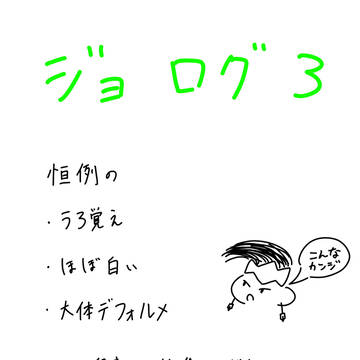 ジョ ログ 3
恒例の
・うろ覚え
・ほぼ白い
・大体デフォルメ
こんな
カンジ